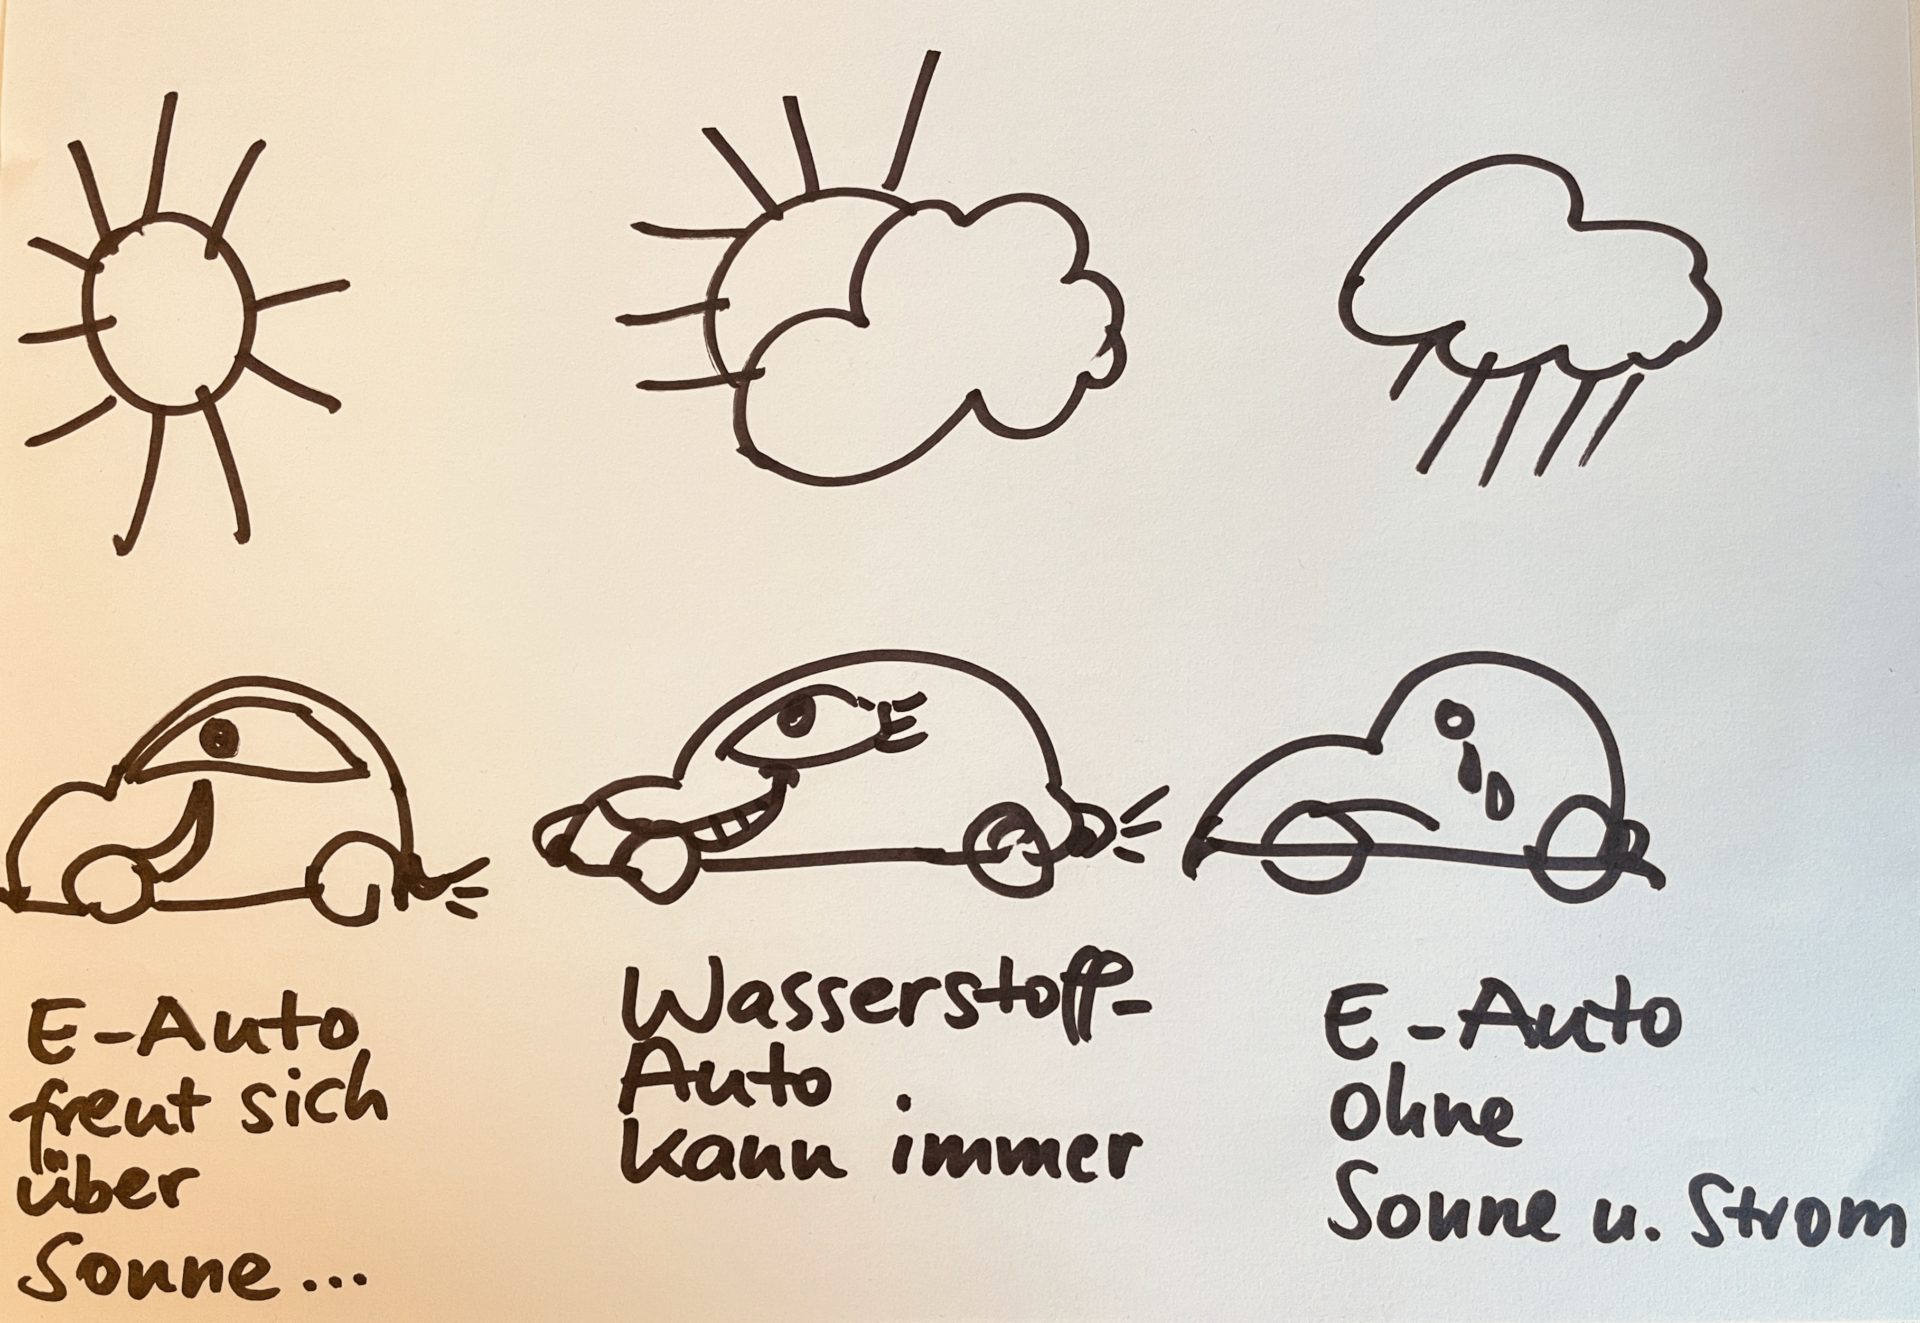 E-Auto
freut sich
über
Sonne...
Wasserstoff-
Auto
kann immer
E-Auto
ohne
Sonne u. Strom